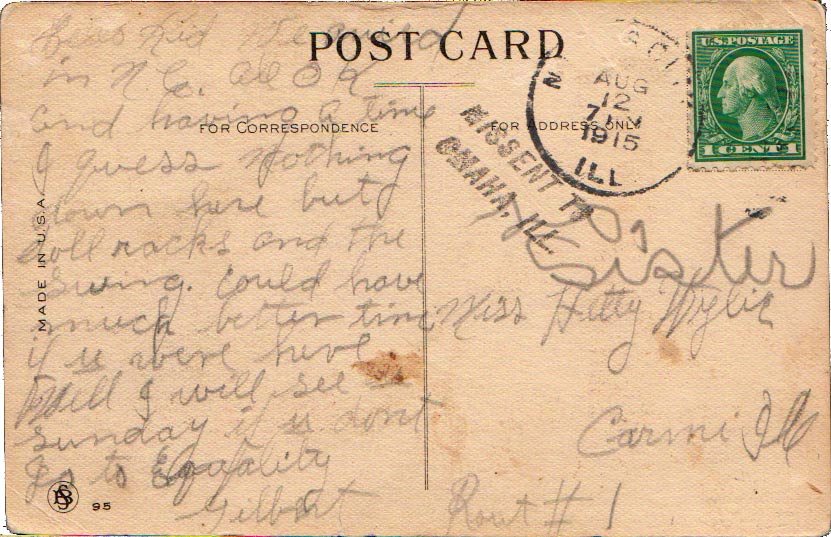 POST CARD
Dear Kid We arrived
in N.C. all OK
and having a time
FOR CORRESPONDENCE
I guess nothing
down here but
doll racks and the
swing. Could have
much better time
if u were here
Well I will see u
sunday if u dont
go to Equality
Gilbert
MADE IN U.S.A.
95
FOR ADDRESS ONLY
AUG
12
1915
ILL.
MISSENT TO
OMAHA, ILL.
U.S. POSTAGE
1 CENT 1
Sister
Miss Hetty Wylie
Carmi Ill
Rout # 1